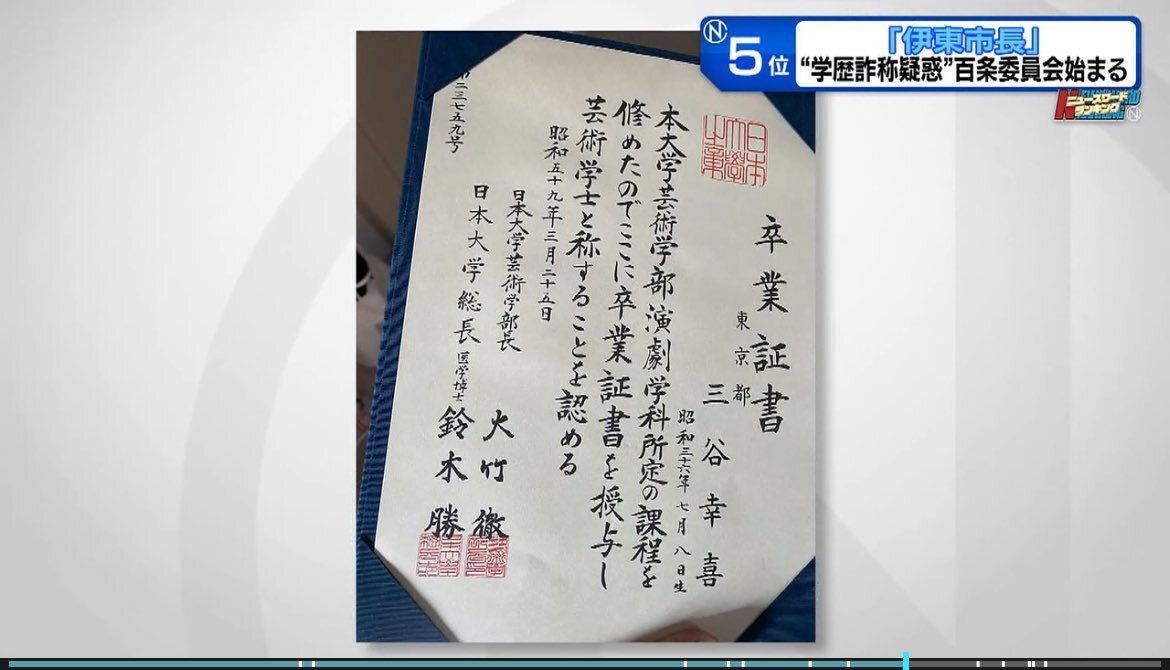 5位
「伊東市長」
“学歴詐称疑惑”百条委員会始まる
ニュースワード
ランキング
卒業証書
東京都
三谷幸喜
昭和三十六年七月八日生
日本
大學
之章
本大学芸術学部演劇学科所定の課程を
修めたのでここに卒業証書を授与し
芸術学士と称することを認める
昭和五十九年三月二十五日
日本大学芸術学部長
大竹徹
日本大学総長
医学博士
鈴木勝
第二三七五九号